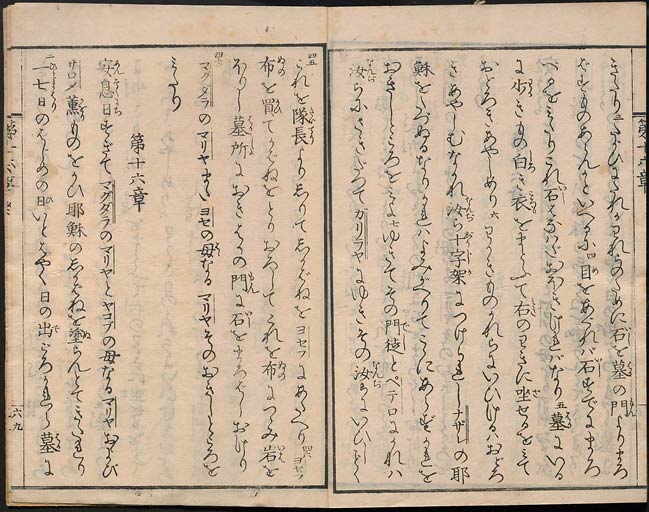 きたり三たがひにたれかわれらのために石を墓の門よりまろ
ばすものあらんかといへるに四目をあぐれバ石すでにまろ
べるをミたりこれ石はなハだおほきけれバなり五墓にいる
に少きもの白き衣をまとふて右のかたに坐せるをミて
おどろきあやしめり六わかきものかれらにいひけるハおどろ
きあやしむなかれ汝ら十字架につけられしナザレの耶
穌をたづぬるなりかれハよみがへりてここにあらずかれを
おきしところをミよ七ゆきてその門徒とペテロにかれハ
汝らにさきだつてガリラヤにゆきその汝らにいひしごく
四五これを隊長よりしりてしかばねをヨセフにあたへり四六ヨセフ
布を買てかばねをとりおろしてこれを布につつみ岩を
ほりし墓所におきはかの門に石をまろばしおけり
四七マグダラのマリヤまたヨセの母なるマリヤそのおきしところを
ミたり
第十六章
安息日すぎてマグダラのマリヤとヤコブの母なるマリヤおよび
サロメ薫ものをかひ耶穌のしかばねを塗らんとてきたれり
二一七日のはじめの日いとはやく日の出ごろかれら墓に
六九